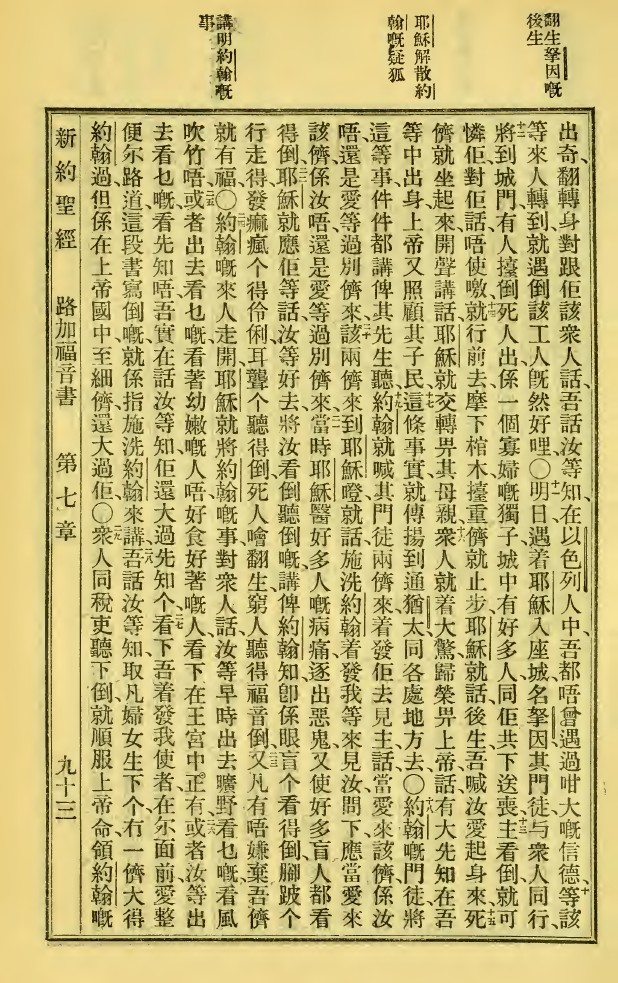 翻生拏因嘅
後生
耶穌解散約
翰嘅疑狐
講明約翰嘅
事
出奇、翻轉身對跟佢該衆人話、吾話汝等知、在以色列人中、吾都唔曾遇過咁大嘅信德、十等該
等來人轉到就遇倒該工人旣然好哩〇十一明日遇着耶穌入座城名拏因、其門徒与衆人同行、
十二將到城門、有人擡倒死人出、係一個寡婦嘅獨子、城中有好多人同佢共下送喪、十三主看倒就可
憐佢對佢話、唔使噭、十四就行前去摩下棺木、擡重儕就止步、耶穌就話、後生吾喊汝愛起身來、十五死
儕就坐起來開聲講話、耶穌就交轉畀其母親、十六衆人就着大驚、歸榮畀上帝話、有大先知在吾
等中出身、上帝又照顧其子民、十七這條事實就傳揚到通猶太同各處地方去、〇十八約翰嘅門徒將
這等事件件都講俾其先生聽、十九約翰就喊其門徒兩儕來着發佢去見主話、當愛來該儕係汝
唔、還是愛等過別儕來、二十該兩儕來到耶穌嶝就話、施洗約翰着發我等來見汝、問下應當愛來
該儕係汝唔、還是愛等過別儕來、二一當時耶穌醫好多人嘅病痛、逐出惡鬼、又使好多盲人都看
得倒、二二耶穌就應佢等話、汝等好去將汝看倒聽倒嘅講俾約翰知、卽係眼盲个看得倒、腳跛个
行走得、發癲瘋个得伶俐、耳聾个聽得倒、死人噲翻生、窮人聽得福音倒、二三又凡有唔嫌棄吾儕
就有福〇二四約翰嘅來人走開、耶穌就將約翰嘅事對衆人話、汝等早時出去曠野看乜嘅、看風
吹竹唔、二五或者出去看乜嘅、看著幼嫩嘅人唔、好食好著嘅人、看下在王宮中正有、二六或者汝等出
去看乜嘅、看先知唔、吾實在話汝等知、佢還大過先知个、二七看下吾着發我使者在尔面前、愛整
便尔路道、這段書寫倒嘅就係指施洗約翰來講、二八吾話汝等知、取凡婦女生下个、冇一儕大得
約翰過、但係在上帝國中至細儕、還大過佢〇二九衆人同稅吏聽下倒、就順服上帝命、領約翰嘅
新約聖經　路加福音書　第七章　九十三